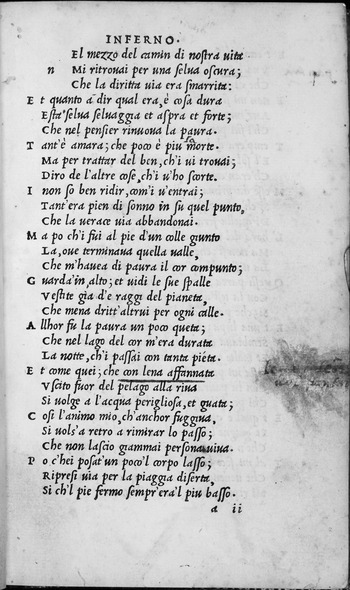 INFERNO.
El mezzo del camin di nostra uita
n Mi ritrouai per una selua oscura;
Che la diritta uia era smarrita:
Et quanto a dir qual era, è cosa dura
Esta selua seluaggia et aspra et forte;
Che nel pensier rinuoua la paura.
Tant'è amara; che poco è piu morte.
Ma per trattar del ben, ch'i ui trouai;
Diro de l'altre cose, ch'i u'ho scorte.
I non so ben ridir, com'i u'entrai;
Tant'era pien di sonno in su quel punto,
Che la uerace uia abbandonai.
Ma po ch'i fui al pie d'un colle giunto
La, oue terminaua quella ualle,
Che m'hauea di paura il cor compunto;
Guarda'in alto; et uidi le sue spalle
Vestite gia d'e raggi del pianeta,
Che mena dritt'altrui per ogni calle.
Allhor fu la paura un poco queta;
Che nel lago del cor m'era durata
La notte, ch'i passai con tanta pieta.
Et come quei; che con lena affannata
Vscito fuor del pelago alla riua
Si uolge a l'acqua perigliosa, et guata;
Cosi l'animo mio, ch'anchor fuggiua,
Si uols'a retro a rimirar lo passo;
Che non lascio giammai persona uiua.
Po c'hei posat'un poco'l corpo lasso;
Ripresi uia per la piaggia diserta,
Si ch'l pie fermo sempr'era'l piu basso.
a ii